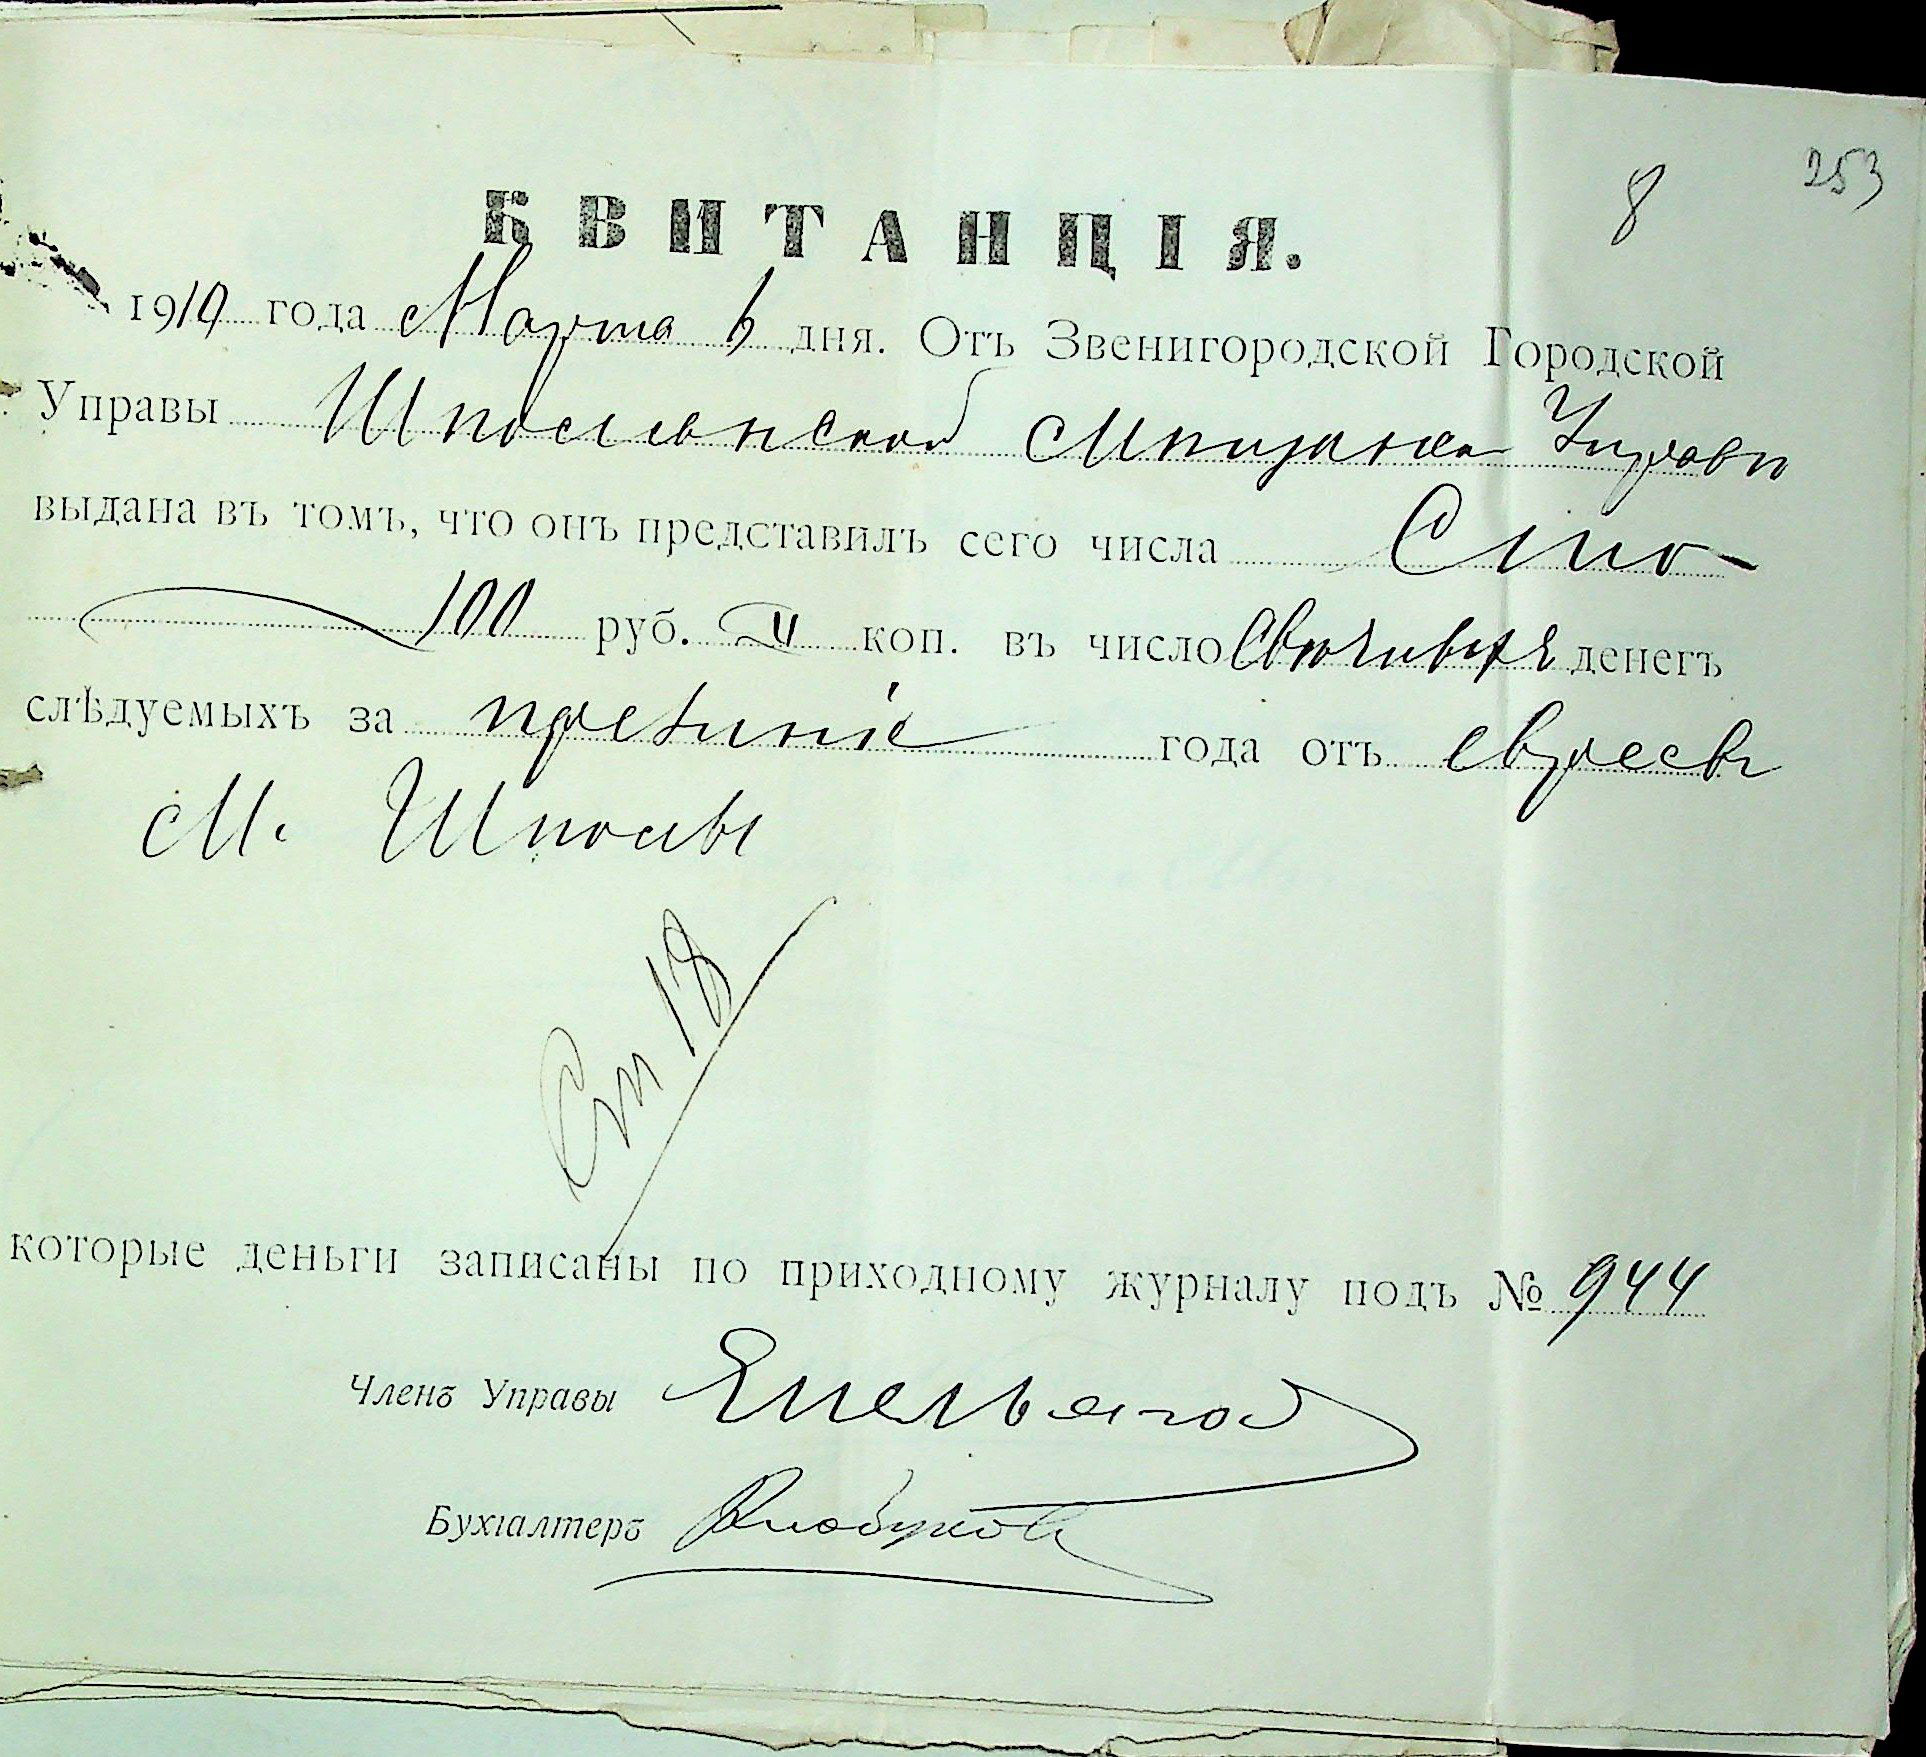 253
8
КВИТАНЦІЯ.
1910 года Марта 6 дня. Отъ Звенигородской Городской
Управы Шполянской Мѣщанской Управы
выдана въ томъ, что онъ представилъ сего числа Сто
100 руб. коп. въ число денегъ
слѣдуемыхъ за прежніе года отъ евреевъ
М. Шполы
Ст 18
которые деньги записаны по приходному журналу подъ № 944
Членъ Управы Емельянов
Бухгалтеръ